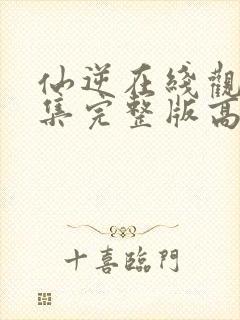 仙逆在綫觀
集完整版高
十喜臨門